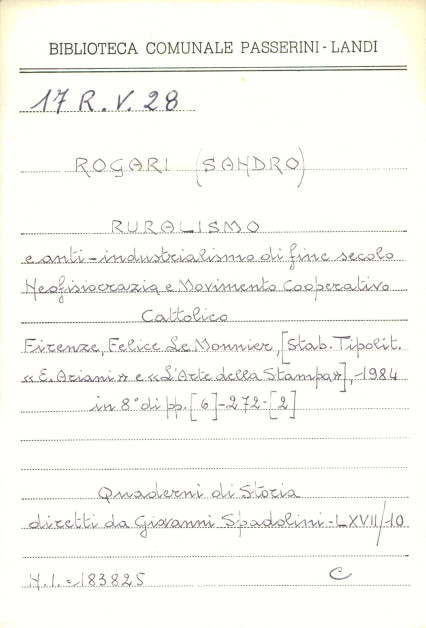 BIBLIOTECA COMUNALE PASSERINI - LANDI
17 R. V. 28
ROGARI (SANDRO)
RURALISMO
e anti-industrialismo di fine secolo
Neofisiocrazia e Movimento Cooperativo
Cattolico
Firenze, Felice Le Monnier, [Stab. Tipolit.
«E. Ariani» e «L'Arte della Stampa»], 1984
in 8° di pp. [6]-272-[2]
Quaderni di Storia
diretti da Giovanni Spadolini - LXVII/10
N.I. = 183825 C